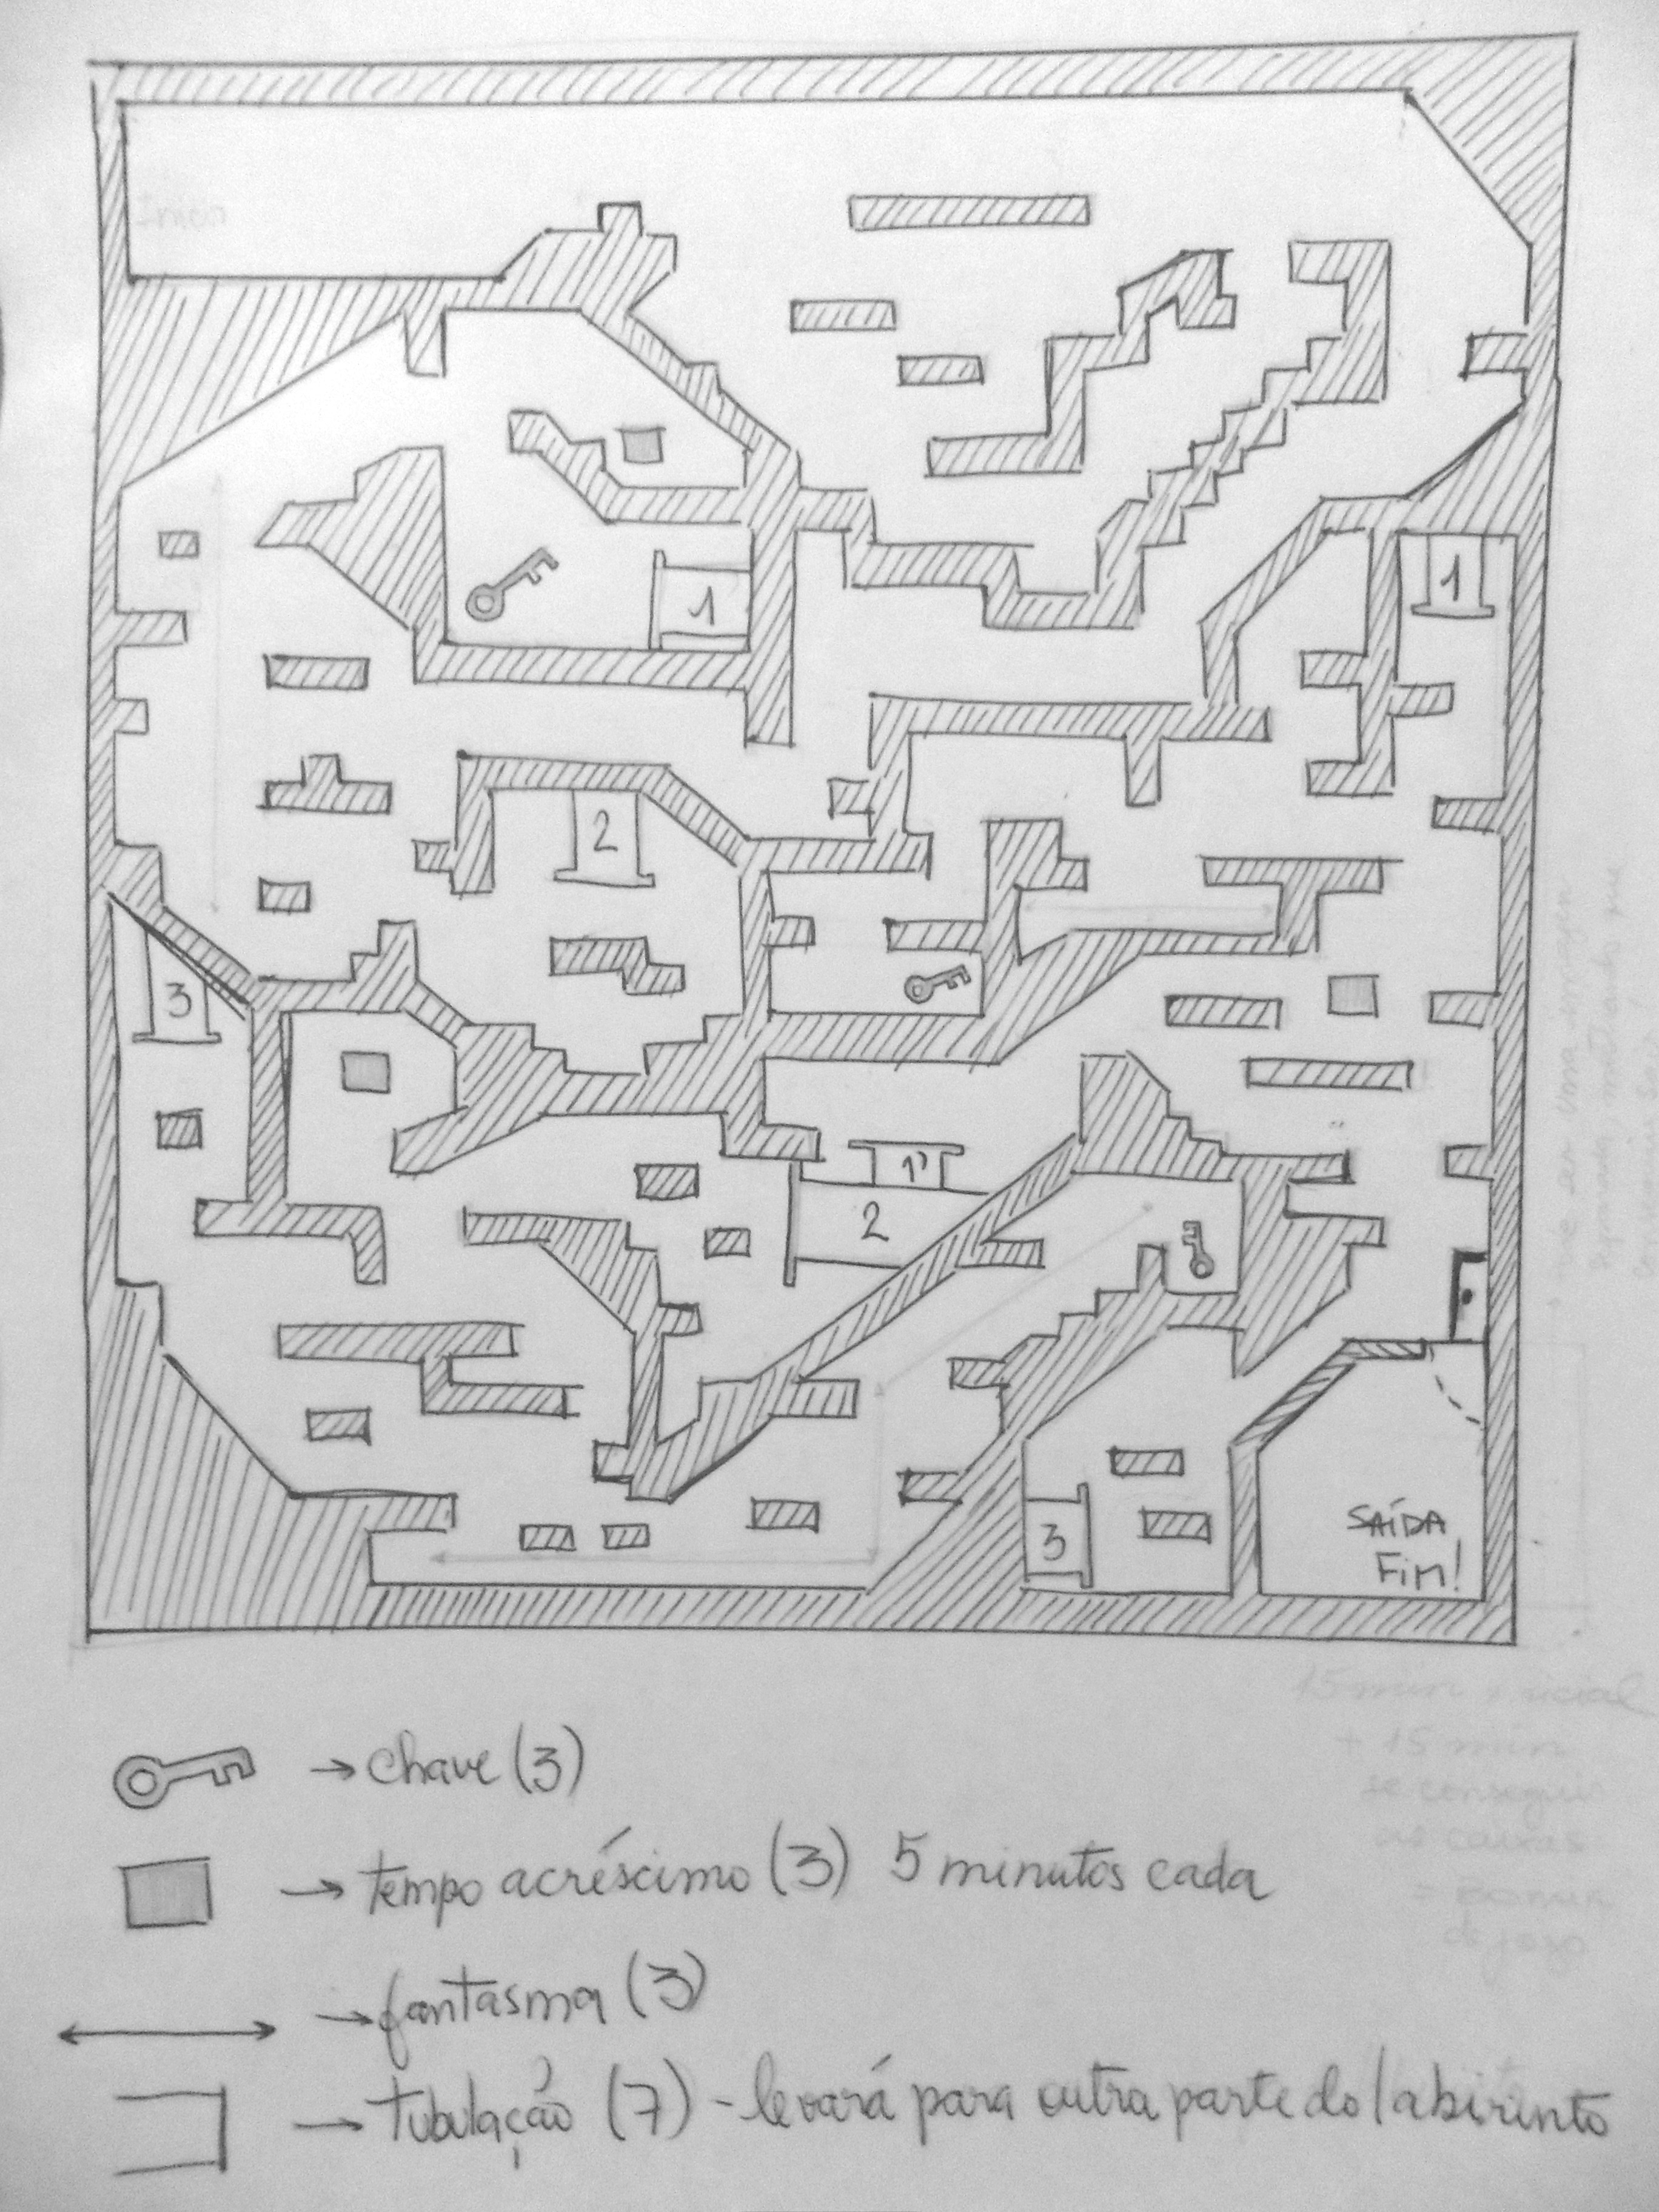 Início
1
1
2
3
1'
2
3
SAÍDA
FIM!
15 min inicial
+ 15 min
se conseguir
as caixas
de jogo
→ chave (3)
→ tempo acréscimo (3) 5 minutos cada
→ fantasma (3)
→ tubulação (7) - levará para outra parte do labirinto